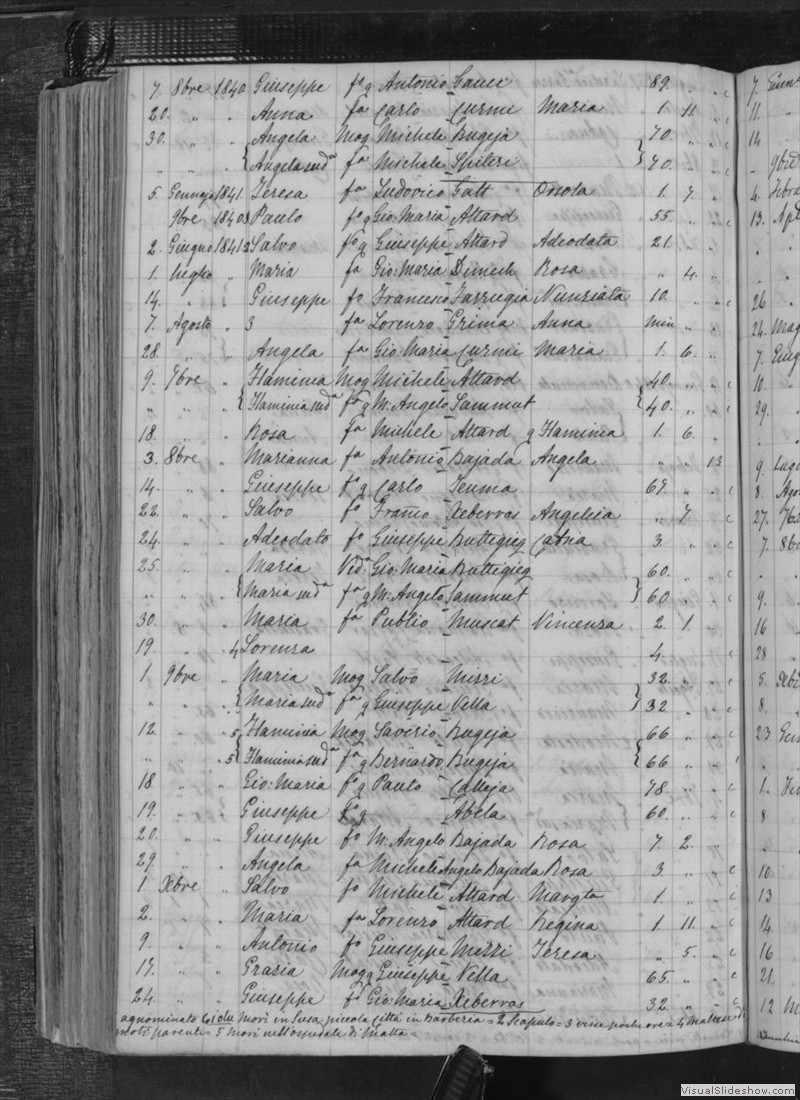 7. 8bre 1840 Giuseppe fo q Antonio Cauci 89. " " c
20. " " Anna fa Carlo Curmi Maria 1. 11. " c
30. " " Angela Mog Michele Bugeja 70. " " c
" " " Angela suda fa Michele Spiteri 70. " " c
5. Gennajo 1841. Teresa fa Ludovico Gatt Orsola 1. 7. " c
9bre 1840 Paulo fo q Gio: Maria Attard 55. " " c
2. Giugno 1841 2 Salvo fo q Giuseppe Attard Adeodata 21. " "
1. luglio " Maria fa Gio: Maria Dimech Rosa " 4. "
14. " " Giuseppe fo Francesco Farrugia Nunziata 10. " " c
7. Agosto " 3 fa Lorenzo Grima Anna min " "
28. " " Angela fa Gio: Maria Curmi Maria 1. 6. "
9. 7bre " Flaminia Mog Michele Attard 40. " " c
" " " Flaminia suda fa q M. Angelo Sammut 40. " " c
18. " " Rosa fa Michele Attard q Flaminia 1. 6. "
3. 8bre " Marianna fa Antonio Bajada Angela " " 13.
14. " " Giuseppe fo q Carlo Teuma 67. " " c
22. " " Salvo fo Franco Xeberras Angelica " 7. " c
24. " " Adeodato fo Giuseppe Buttegieg Catna 3. " " c
25. " " Maria Veda Gio: Maria Buttegieg 60. " " c
" " " Maria suda fa q M. Angelo Sammut 60. " " c
30. " " Maria fa Publio Muscat Vincenza 2. 1. "
19. " " 4 Lorenza 4. " " c
1. 9bre " Maria Mog Salvo Mizzi 32. " " c
" " " Maria suda fa q Giuseppe Vella 32 " " c
12. " " 5 Flaminia Mog Saverio Bugeja 66 " " c
" " " 5 Flaminia suda fa q Bernardo Bugeja 66 " "
18 " " Gio: Maria fo q Paulo Calleja 78 " " c
19. " " Giuseppe fo q Abela 60. " " c
20. " " Giuseppe fo M. Angelo Bajada Rosa 7. 2. "
29. " " Angela fa Michele Angelo Bajada Rosa 3. " " c
1. Xbre " Salvo fo Michele Attard Margta 1. " " c
2. " " Maria fa Lorenzo Attard Regina 1. 11. " c
9. " " Antonio fo Giuseppe Mizzi Teresa " 5. " c
17. " " Grazia Mog q Giuseppe Vella 65. " " c
24. " " Giuseppe fo Gio: Maria Xeberras 32. " " c
agnominato mori in Susa piccola città in Barberia = 2 Scapulo = 3 visse poche ore = 4 Maltese
noti parenti = 5 mori nell'ospedale di Malta =
7.
11.
14
" 9bre
4.
13.
26
24.
7.
10.
29.
9.
8.
27. 7b
7. 8b
9.
16
28
5. Xb
8.
23
1.
8
10
13
14
16
21.
12 M
VisualSlideshow.com